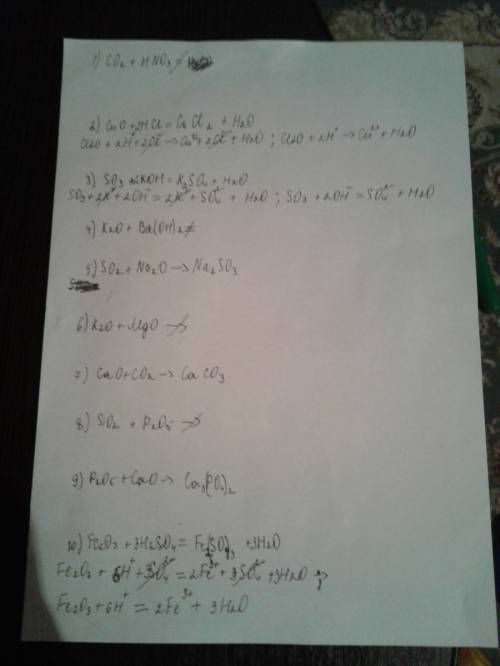 1) CO₂ + HNO₃ ≠
2) CuO + 2HCl = CuCl₂ + H₂O
CuO + 2H⁺ + 2Cl⁻ → Cu²⁺ + 2Cl⁻ + H₂O ; CuO + 2H⁺ → Cu²⁺ + H₂O
3) SO₃ + 2KOH = K₂SO₄ + H₂O
SO₃ + 2K⁺ + 2OH⁻ = 2K⁺ + SO₄²⁻ + H₂O ; SO₃ + 2OH⁻ = SO₄²⁻ + H₂O
4) K₂O + Ba(OH)₂ ≠
5) SO₂ + Na₂O → Na₂SO₃
6) K₂O + MgO ↛
7) CaO + CO₂ → CaCO₃
8) SiO₂ + P₂O₅ ↛
9) P₂O₅ + CaO → Ca₃(PO₄)₂
10) Fe₂O₃ + 3H₂SO₄ = Fe₂(SO₄)₃ + 3H₂O
Fe₂O₃ + 6H⁺ + 3SO₄²⁻ = 2Fe³⁺ + 3SO₄²⁻ + 3H₂O
Fe₂O₃ + 6H⁺ = 2Fe³⁺ + 3H₂O